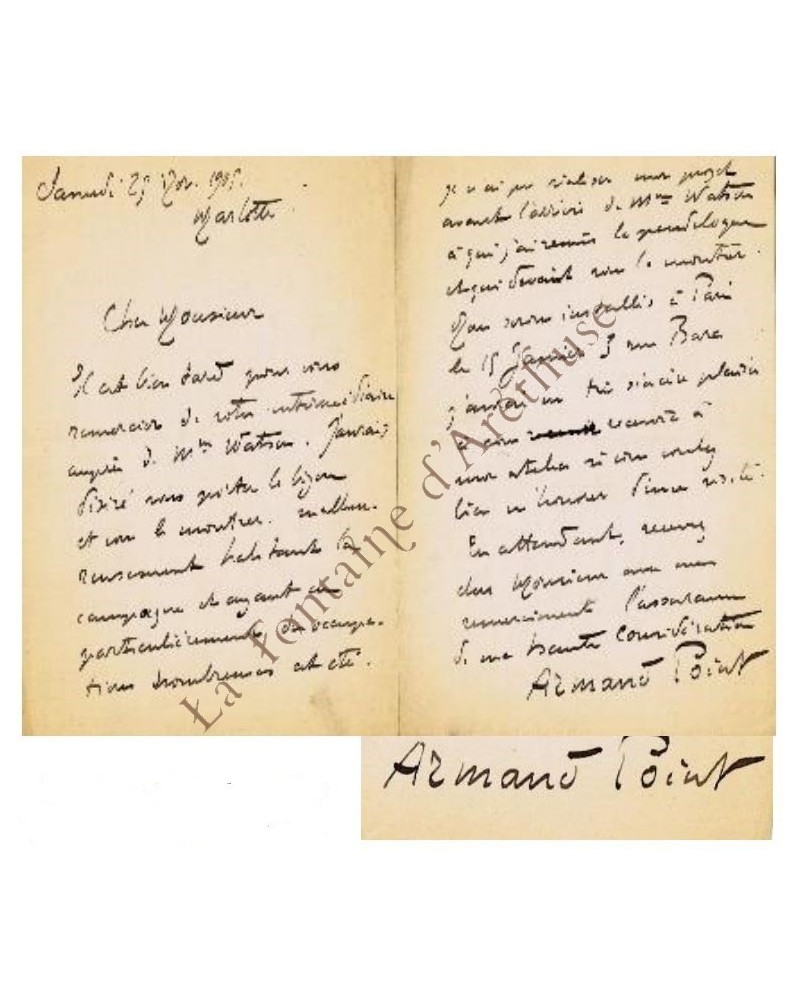 Samedi 25 Nov. 1905.
Marlotte
Cher Monsieur
Il est bien tard pour vous
remercier de votre intermédiaire
auprès de Mme Watson. J'aurais
désiré vous porter le bijou
et vous le montrer. malheu-
reusement habitant la
campagne et ayant eu
particulièrement des occupa-
tions nombreuses cet été.
je n'ai pu réaliser mon projet
avant l'arrivée de Mme Watson
à qui j'ai remis le pendeloque
et qui devait vous le montrer.
Nous serons installés à Paris
le 15 Janvier 3 rue Bara
j'aurai un très sincère plaisir
à vous recevoir à
mon atelier si vous voulez
bien m'honorer d'une visite.
En attendant, recevez
cher Monsieur avec mes
remerciments l'assurance
de ma haute considération
Armand Point
Armand Point
La Fontaine d'Aréthuse